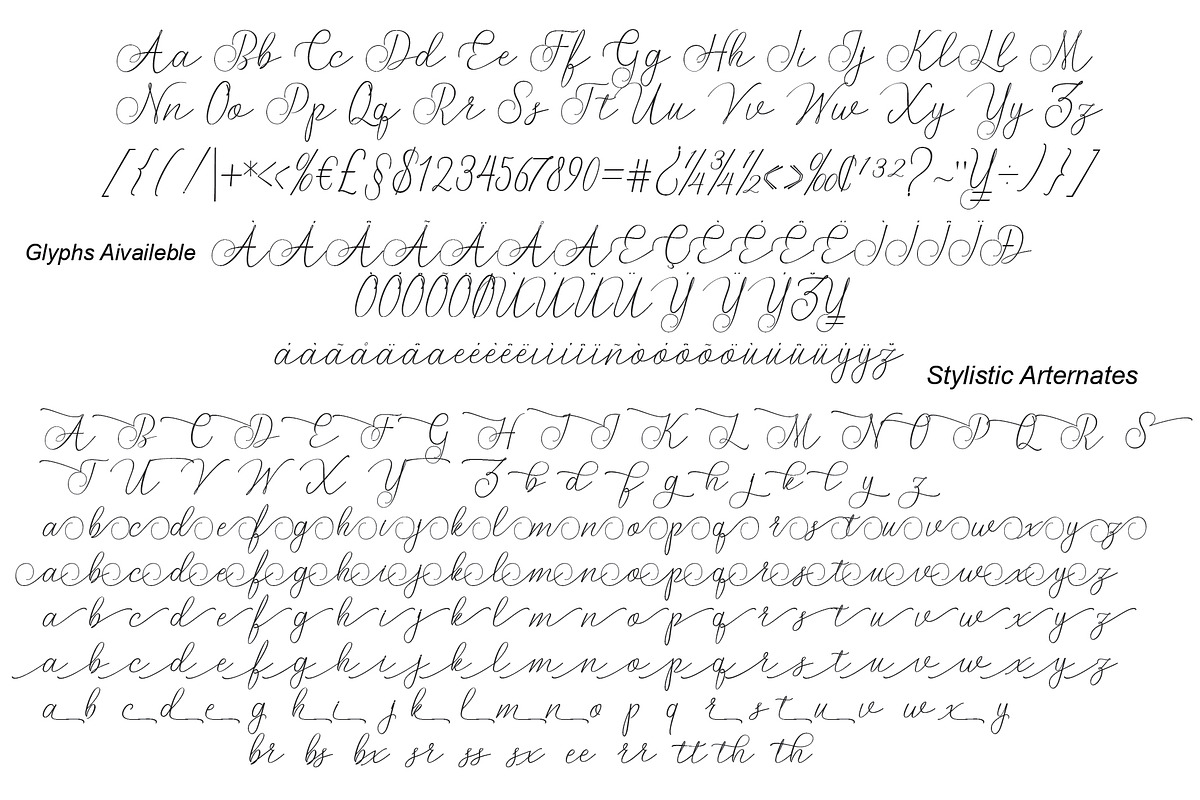 Aa Bb Cc Dd Ee Ff Gg Hh Ii Jj Kl Ll M
Nn Oo Pp Qq Rr Ss Tt Uu Vv Ww Xy Yy Zz
[ { ( / | + * << % € £ § $ 1 2 3 4 5 6 7 8 9 0 = # ¿ ¼ ¾ ½ < > ‰ ¢ ¹ ³ ² ? ~ " ¥ ÷ ) } ]
Glyphs Aivaileble
Stylistic Arternates
A B C D E F G H I J K L M N O P Q R S
T U V W X Y Z b d f g h j k l y z
a b c d e f g h i j k l m n o p q r s t u v w x y z
a b c d e f g h i j k l m n o p q r s t u v w x y z
a b c d e f g h i j k l m n o p q r s t u v w x y z
a b c d e f g h i j k l m n o p q r s t u v w x y z
a b c d e g h i j k l m n o p q r s t u v w x y
br bs bx sr ss sx ee rr tt th th